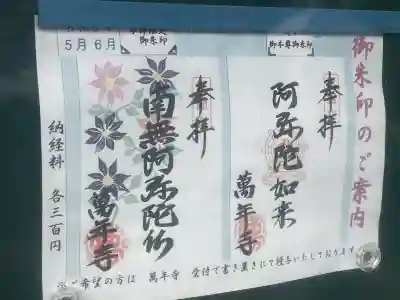 御朱印のご案内
御本尊御朱印
奉拝
阿弥陀如来
萬年寺
5月 6月
御朱印
奉拝
南無阿弥陀仏
萬年寺
納経料 各三百円
※ご希望の方は 萬年寺 受付で書き置きにて授与いたしております